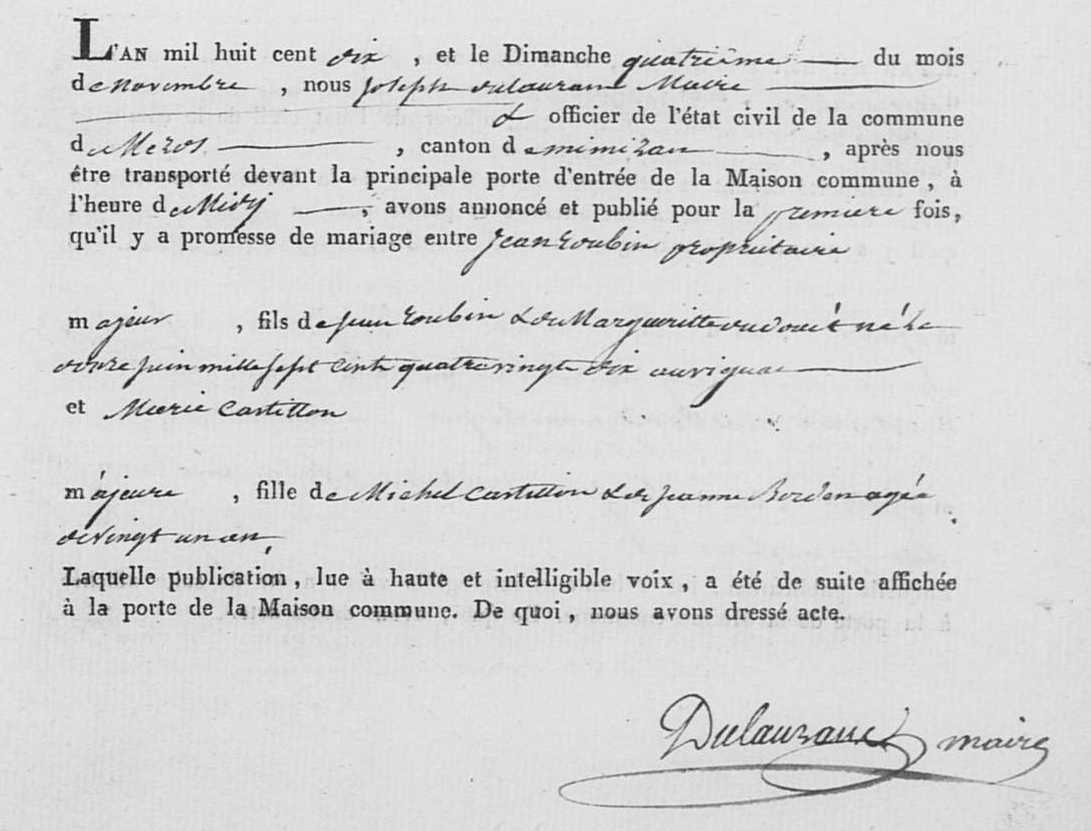 L'AN mil huit cent dix , et le Dimanche quatrième du mois
de novembre , nous joseph dulauranc Maire
& officier de l'état civil de la commune
de Mezos , canton de mimizan , après nous
être transporté devant la principale porte d'entrée de la Maison commune, à
l'heure de Midy , avons annoncé et publié pour la première fois,
qu'il y a promesse de mariage entre Jean Loubin propriétaire
majeur , fils de jean Loubin & de Margueritte né le
douze juin mille sept cents quatre vingt dix
et Marie Castillon
majeure , fille de Michel Castillon & de Jeanne Borden agée
de vingt un an,
Laquelle publication, lue à haute et intelligible voix, a été de suite affichée
à la porte de la Maison commune. De quoi, nous avons dressé acte.
Dulauranc maire